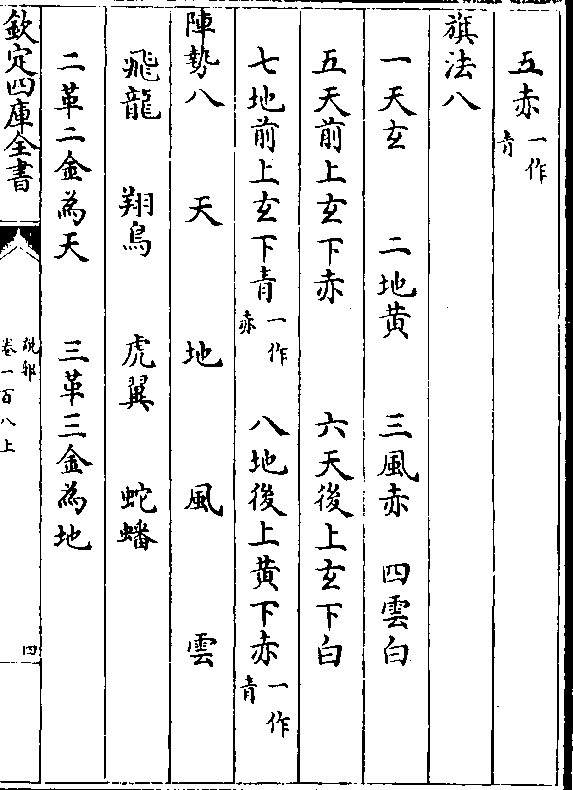 五赤一作青
旗法八
一天玄 二地黄 三風赤 四雲白
五天前上玄下赤 六天後上玄下白
七地前上玄下青一作赤 八地後上黄下赤一作青
陣勢八 天 地 風 雲
飛龍 翔鳥 虎翼 蛇蟠
二革二金為天 三革三金為地
欽定四庫全書
說郛
卷一百八上
四